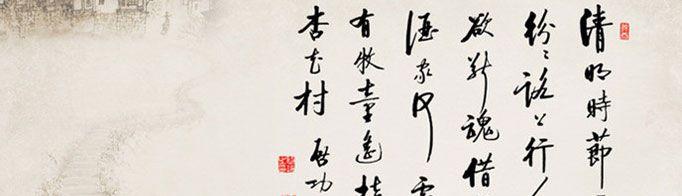 清明時節
紛紛路上行人
欲斷魂借
酒家何
有牧童遙指
杏花村
啟功